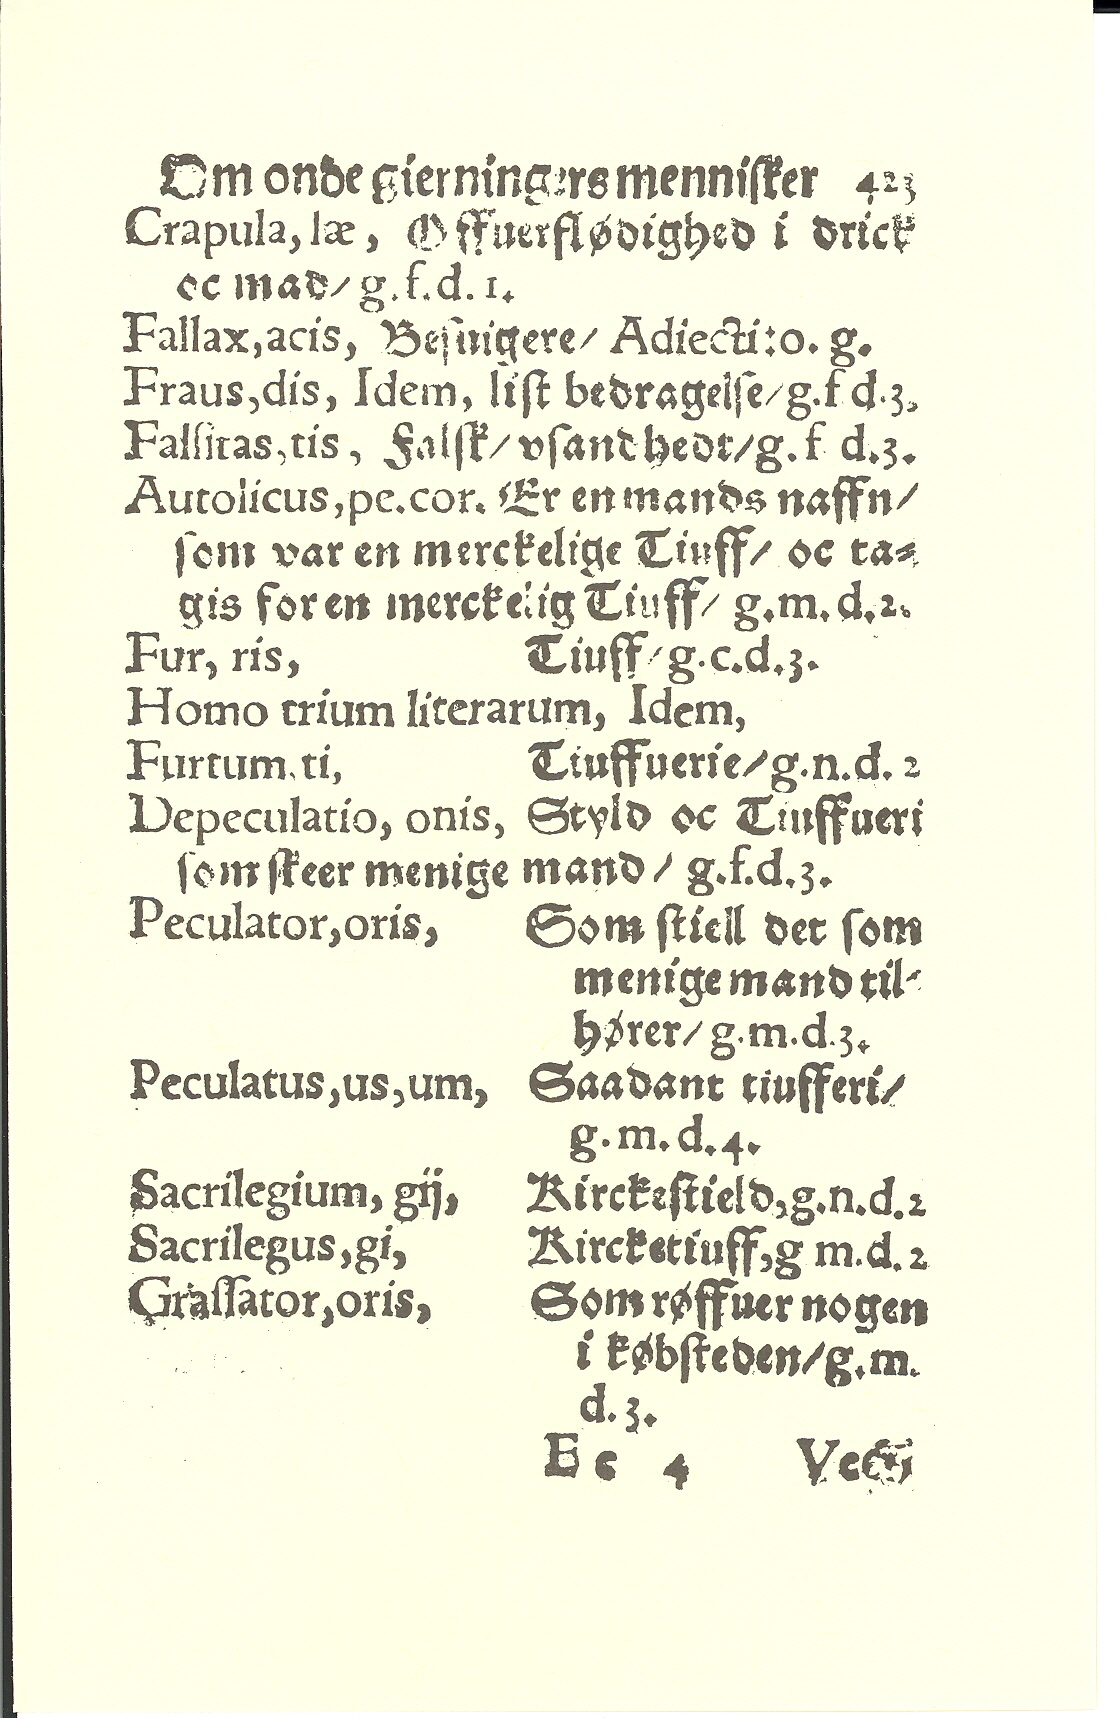 Om onde gierningers menniſker 423
Crapula, læ, Offuerflødighed i drick
oc mad/ g.f.d.1.
Fallax,acis, Beſuigere/ Adiecti: o. g.
Fraus,dis, Idem, liſt bedragelſe/g.f d.3.
Falſitas,tis, Falſk/ vſandhedt/g. f d.3.
Autolicus,pe.cor. Er en mands naffn/
ſom var en merckelige Tiuff/ oc ta⸗
gis for en merckelig Tiuff/ g.m.d.2.
Fur, ris, Tiuff/g.c.d.3.
Homo trium literarum, Idem,
Furtum,ti, Tiuffuerie/g.n.d. 2
Depeculatio, onis, Styld oc Tiuffueri
ſom ſkeer menige mand / g.f.d.3.
Peculator,oris, Som ſtiell det ſom
menige mand til⸗
hører/ g.m.d.3.
Peculatus,us,um, Saadant tiufferi/
g.m.d.4.
Sacrilegium, gij, Kirckeſtield,g.n.d.2
Sacrilegus,gi, Kircketiuff,g m.d.2
Graſſator,oris, Som røffuer nogen
i købſteden/g.m.
d.3.
Ee 4